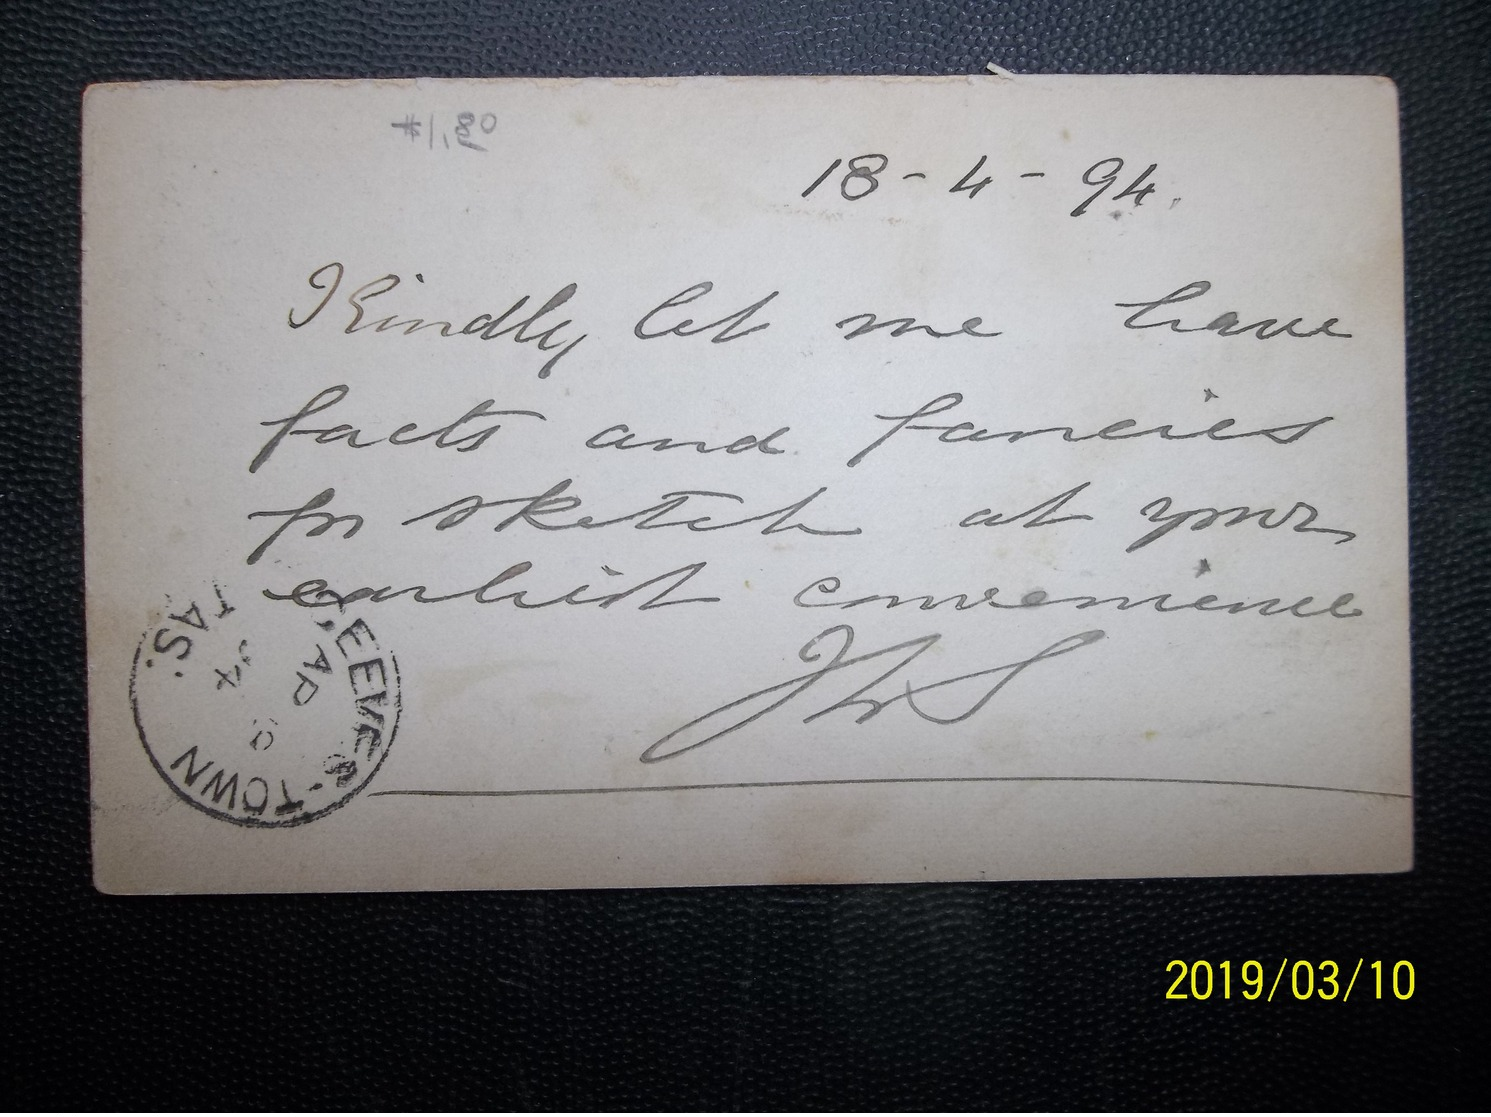 $1.80
18-4-94.
Kindly let me have
facts and fancies
for sketch at your
earliest convenience
JWS
TAS.
AP
94
-TOWN
2019/03/10